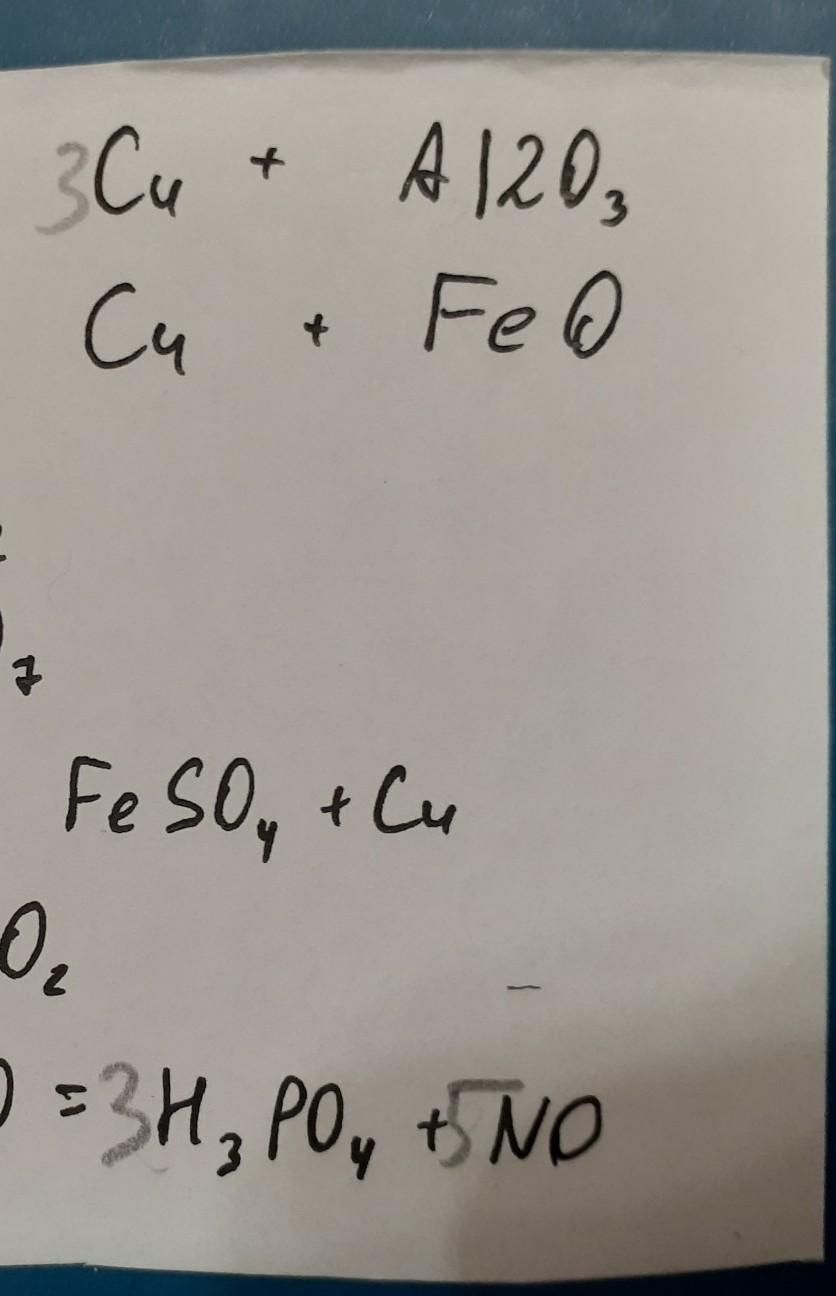 3Cu + Al2O₃
Cu + FeO
₇
FeSO₄ + Cu
O₂
= 3H₃PO₄ + 5NO